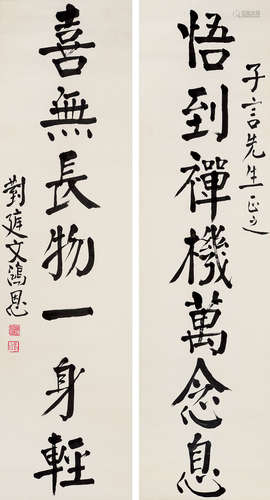 子言先生正之
悟到禪機萬念息
喜無長物一身輕
對庭文鴻恩